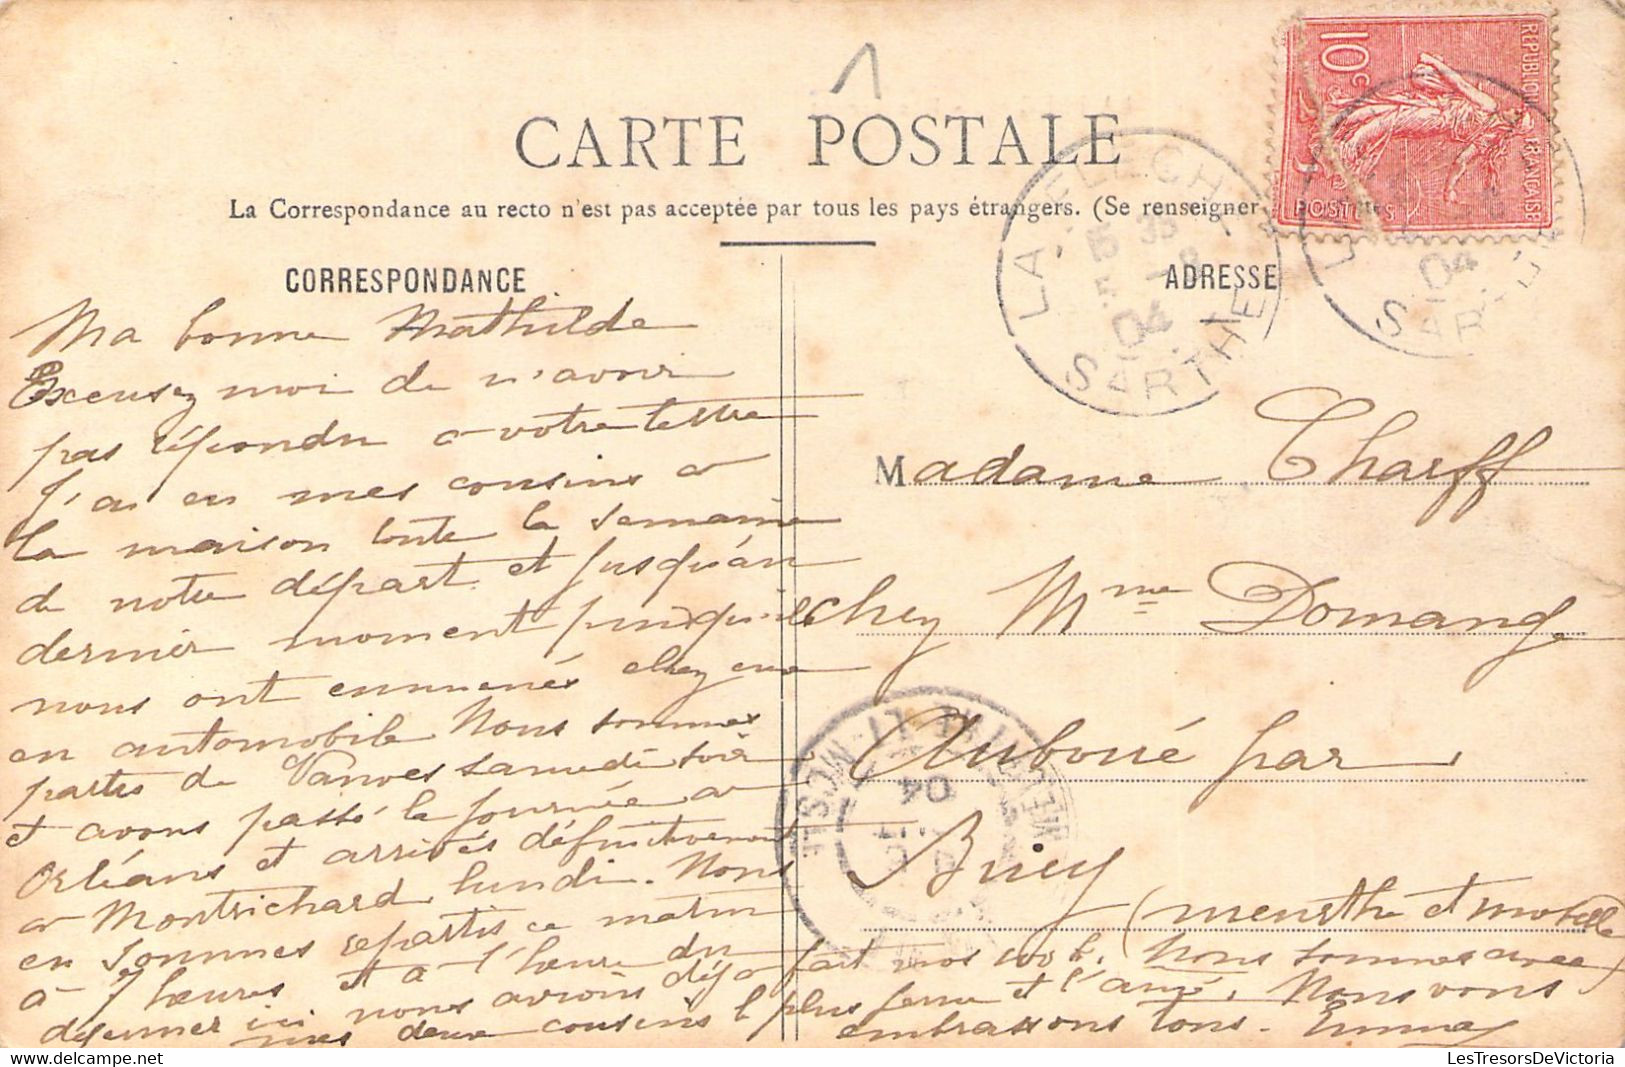 CARTE POSTALE
La Correspondance au recto n'est pas acceptée par tous les pays étrangers. (Se renseigner
CORRESPONDANCE
Ma bonne Mathilde
Excusez moi de n'avoir
pas répondu a votre lettre
J'ai eu mes cousins a
la maison toute la semaine
de notre départ et jusqu'au
dernier moment puisqu'ils
nous ont emmenés chez eux
en automobile Nous sommes
partis de Vanves samedi soir
et avons passé la journée a
Orléans et arrivés définitivement
a Montrichard lundi. Nous
en sommes repartis ce matin
à 7 heures et a l'heure du
déjeuner ici nous avions déjà fait nos 100 k. Nous sommes avec
mes deux cousins l plus jeune et l'ainé. Nous vous
embrassons tous. Emma
ADRESSE
Madame Charff
chez Mme Domange
Auboué par
Briey
(Meurthe et Moselle)
REPUBLIQUE FRANÇAISE
10c
POSTES
LA FLECHE
04
SARTHE
04
SARTHE
04
LesTresorsDeVictoria